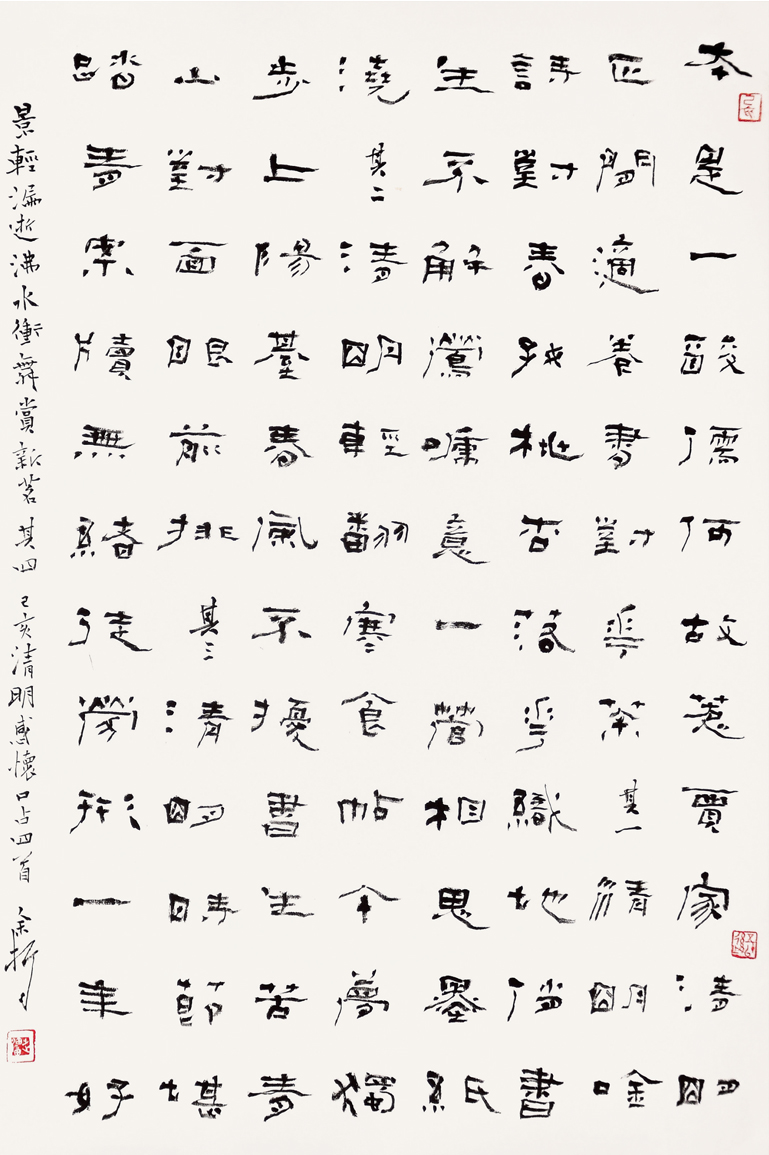 本是一酸儒何故惹賈家清明
正閒適卷書對華茶其一清明唫
詩對春桃杏落華織地俏書
生不解鶯意一相思墨紙
澆其二清明輕翻寒食帖今夢獨
步上陽臺春氣不擾書生苦青
山對面眼前排其三清明時節堪
踏青案牘無緒徒勞形一年好
景輕漏逝沸水衝舞賞新茗其四己亥清明感懷口占四首余